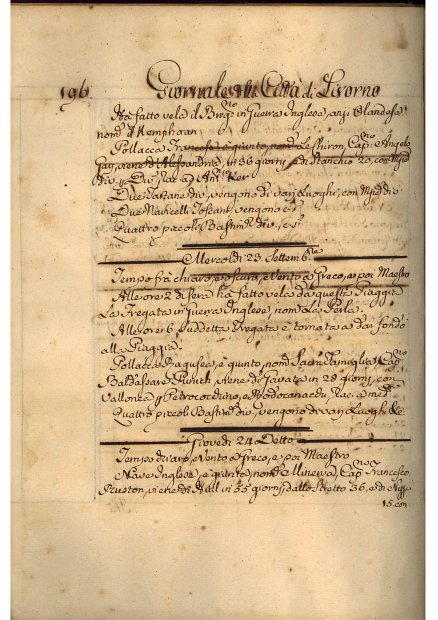 196 Giornale della Città di Livorno
Ha fatto vela il Brig.no in Guerra Inglese, anzi Olandese
nom.o il Memphaan
Pollacca Francese è giunto, nom.o Le Chiron, Cap.no Angelo
Gay, viene d'Alessandria, in 36 giorni, e da Stanchio 20, con Mjd
div. p Div., Rac. a Ant. Ker
Due Tartane div., vengono di varj Luoghi, con Mjd div.
Due Navicelli Toscani, vengono c.s.
Quattro piccoli Bastim.ti div., c.s.
Mercoldì 23 Settemb.re
Tempo frà chiaro, e oscuro, e Vento a Greco, e poi Maestro
Alle ore 2 di sera ha fatto vela da questa Piaggia
La Fregata in Guerra Inglese, nom.a La Perla.
Alle ore 6 suddetta Fregata è tornata a dar fondo
alla Piaggia.
Pollacca Ragusea, è giunto, nom.o Sacra Famiglia, Cap.no
Baldassare Kunich, viene di Gavata in 28 giorni, con
Vallonea p Petrococchino, e Rodocanacchi, Rac. a med.mi
Quattro piccoli Bastim.ti div., vengono di varj Luoghi
Giovedì 24 Detto
Tempo chiaro, e Vento a Greco, e poi Maestro
Nave Inglese, è giunto, nom.o Minerva, Cap.no Francesco
viene di Hull in 55 giorni, dallo Stretto 36, e di Nizza
15. con